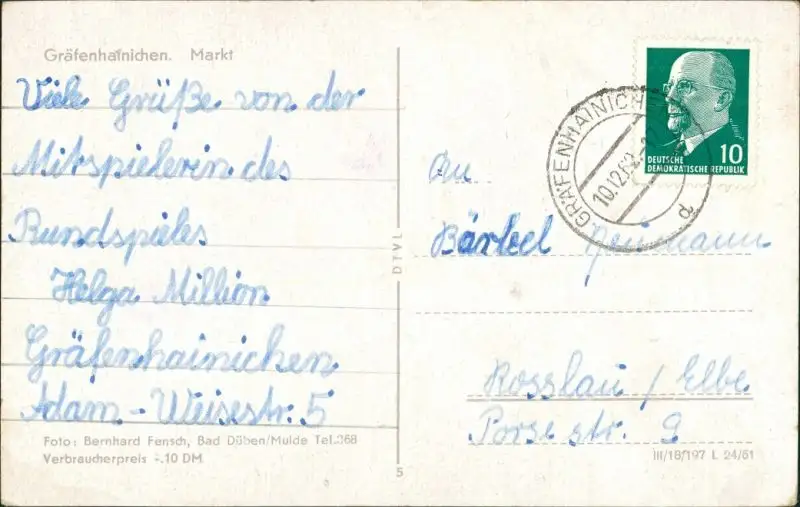 Gräfenhainichen. Markt
Viele Grüße von der
Mitspielerin des
Rundspieles
Helga Million
Gräfenhainichen
Adam-Weisestr. 5
Foto: Bernhard Fensch, Bad Düben/Mulde Tel.368
Verbraucherpreis -.10 DM
DTVL
5
GRÄFENHAINICH
10.12.62
d
10
DEUTSCHE
DEMOKRATISCHE REPUBLIK
An
Bärbel Neumann
Rosslau / Elbe
Porsestr. 9
III/18/197 L 24/61